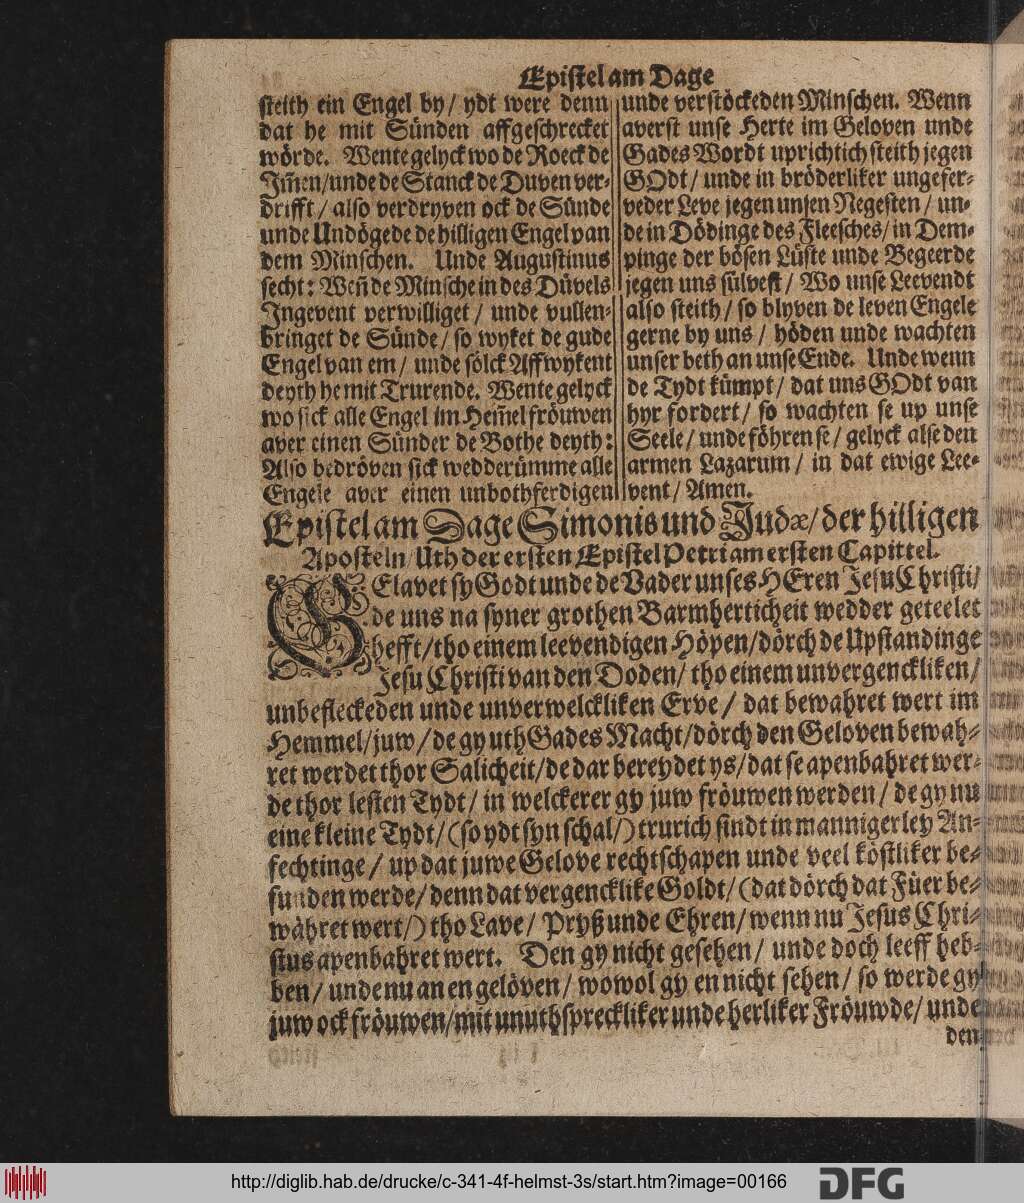 Epistel am Dage
steith ein Engel by / ydt were denn
dat he mit Sünden affgeschrecket
wörde. Wente gelyck wo de Roeck de
Jm̃en / unde de Stanck de Duven ver-
drifft / also verdryven ock de Sünde
unde Undögede de hilligen Engel van
dem Minschen. Unde Augustinus
secht: Weñ de Minsche in des Düvels
Jngevent verwilliget / unde vullen-
bringet de Sünde / so wyket de gude
Engel van em / unde sölck Affwykent
deyth he mit Trurende. Wente gelyck
wo sick alle Engel im Hem̃el fröuwen
aver einen Sünder de Bothe deyth:
Also bedröven sick wedderümme alle
Engele aver einen unbothferdigen
unde verstöckeden Minschen. Wenn
averst unse Herte im Geloven unde
Gades Wordt uprichtich steith jegen
GOdt / unde in bröderliker ungefer-
veder Leve jegen unsen Negesten / un-
de in Dödinge des Fleesches / in Dem-
pinge der bösen Lüste unde Begeerde
jegen uns sülvest / Wo unse Leevendt
also steith / so blyven de leven Engele
gerne by uns / höden unde wachten
unser beth an unse Ende. Unde wenn
de Tydt kümpt / dat uns GOdt van
hyr fordert / so wachten se up unse
Seele / unde föhren se / gelyck alse den
armen Lazarum / in dat ewige Lee-
vent / Amen.
Epistel am Dage Simonis und Judæ / der hilligen
Aposteln / Uth der ersten Epistel Petri am ersten Capittel.
GElavet sy Godt unde de Vader unses HEren Jesu Christi /
de uns na syner grothen Barmherticheit wedder geteelet
hefft / tho einem leevendigen Höpen / dörch de Upstandinge
Jesu Christi van den Doden / tho einem unvergenckliken /
unbefleckeden unde unverwelckliken Erve / dat bewahret wert im
Hemmel / juw / de gy uth Gades Macht / dörch den Geloven bewah-
ret werdet thor Salicheit / de dar bereydet ys / dat se apenbahret wer-
de thor lesten Tydt / in welckerer gy juw fröuwen werden / de gy nu
eine kleine Tydt / (so ydt syn schal /) trurich sindt in mannigerley An-
fechtinge / up dat juwe Gelove rechtschapen unde veel köstliker be-
funden werde / denn dat vergencklike Goldt / (dat dörch dat Füer be-
währet wert /) tho Lave / Pryß unde Ehren / wenn nu Jesus Chri-
stus apenbahret wert. Den gy nicht gesehen / unde doch leeff heb-
ben / unde nu an en gelöven / wowol gy en nicht sehen / so werde gy
juw ock fröuwen / mit unuthspreckliker unde herliker Fröuwde / unde
den
http://diglib.hab.de/drucke/c-341-4f-helmst-3s/start.htm?image=00166
DFG